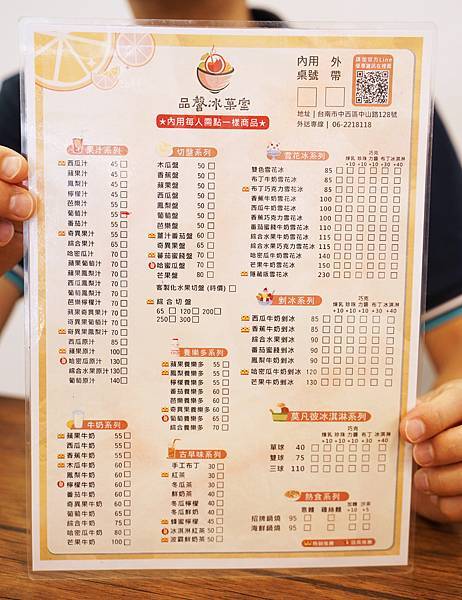 品馨冰菓室
★內用每人需點一樣商品★
內用 外
桌號 帶
□ □
地址 | 台南市中西區中山路128號
外送專線 | 06-2218118
果汁系列
西瓜汁 45 □
芭樂汁 45 □
蘋果汁 45 □
鳳梨汁 45 □
檸檬汁 45 □
葡萄汁 55
番茄汁 55 □
奇異果汁 65 □
綜合果汁 65 □
哈密瓜汁 70 □
蘋果葡萄汁 70 □
蘋果鳳梨汁 70 □
西瓜鳳梨汁 70 □
西瓜檸檬汁 70 □
葡萄鳳梨汁 70 □
芭樂檸檬汁 70 □
蘋果奇異果汁 70 □
奇異果葡萄汁 70 □
奇異果鳳梨汁 70 □
西瓜原汁 85 □
蘋果原汁 100 □
哈密瓜原汁 130 □
綜合水果原汁 130 □
葡萄原汁 140 □
牛奶系列
蘋果牛奶 55 □
西瓜牛奶 55 □
香蕉牛奶 55 □
木瓜牛奶 60 □
鳳梨牛奶 60 □
檸檬牛奶 60 □
番茄牛奶 60 □
奇異果牛奶 65 □
葡萄牛奶 65 □
綜合牛奶 75 □
哈密瓜牛奶 80 □
芒果牛奶 100 □
切盤系列
木瓜盤 50 □
香蕉盤 50 □
鳳梨盤 50 □
蘋果盤 50 □
西瓜盤 50 □
葡萄盤 50 □
芭樂盤 50 □
薑汁番茄盤 60 □
奇異果盤 65 □
蕃茄蜜餞盤 70 □
哈蜜瓜盤 70 □
芒果盤 80 □
客製化水果切盤 (時價) □
綜合切盤
65 □ 120 □ 200 □
250 □ 300 □
養樂多系列
蘋果養樂多 55 □
鳳梨養樂多 55 □
檸檬養樂多 60 □
番茄養樂多 60 □
芭樂養樂多 60 □
奇異果養樂多 60 □
葡萄養樂多 65 □
綜合養樂多 65 □
古早味系列
手工布丁 30 □
紅茶 30 □
冬瓜茶 30 □
鮮奶茶 40 □
冬瓜檸檬 40 □
冬瓜鮮奶 40 □
蜂蜜檸檬 45 □
冰淇淋紅茶 50 □
波霸鮮奶茶 50 □
雪花冰系列
巧克
煉乳 珍珠 力醬 布丁 冰淇淋
+10 +10 +10 +30 +40
雙色雪花冰 85
布丁牛奶雪花冰 85
布丁巧克力雪花冰 85
香蕉牛奶雪花冰 100
西瓜牛奶雪花冰 110
香蕉巧克力雪花冰 115
蕃茄蜜餞牛奶雪花冰 115
綜合水果牛奶雪花冰 115
綜合水果巧克力雪花冰 115
哈密瓜牛奶雪花冰 135
芒果牛奶雪花冰 150
豪華版雪花冰 230
剉冰系列
巧克
煉乳 珍珠 力醬 布丁 冰淇淋
+10 +10 +10 +30 +40
西瓜牛奶剉冰 85
香蕉牛奶剉冰 85
綜合水果剉冰 85
蕃茄蜜餞剉冰 85
哈密瓜牛奶剉冰 120
芒果牛奶剉冰 130
莫凡彼冰淇淋系列
巧克
煉乳 珍珠 力醬 布丁 冰淇淋
+10 +10 +10 +30 +40
單球 40
雙球 75
三球 110
熱食系列
意麵 雞絲麵
招牌鍋燒 95
海鮮鍋燒 95